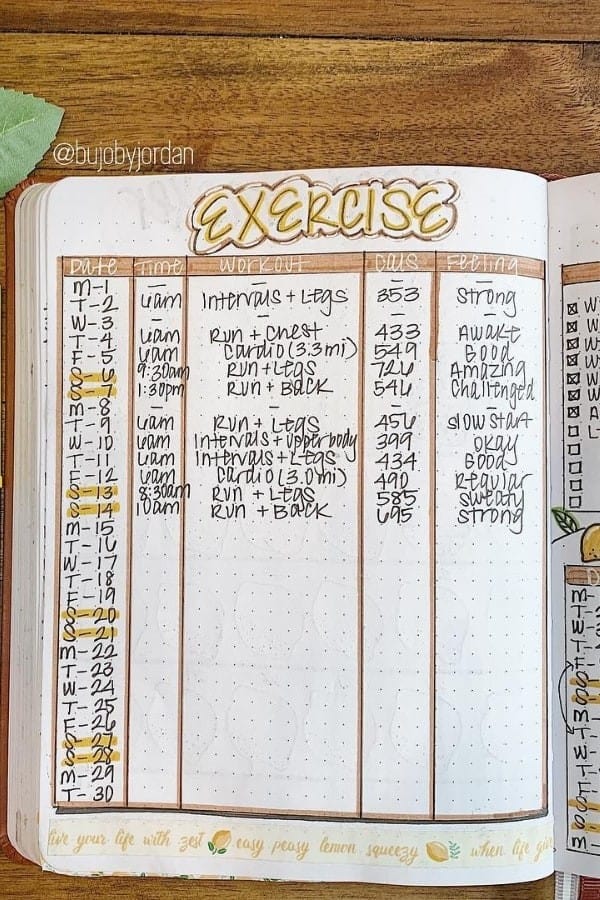 @bujobyjordan
EXERCISE
Date Time Workout Cals Feeling
M-1 — — — —
T-2 6am Intervals + Legs 353 Strong
W-3 — — — —
T-4 6am Run + Chest 433 Awake
F-5 6am Cardio (3.3mi) 549 Good
S-6 9:30am Run + Legs 726 Amazing
S-7 1:30pm Run + Back 546 Challenged
M-8 — — — —
T-9 6am Run + Legs 456 slow start
W-10 6am Intervals + upperbody 399 okay
T-11 6am Intervals + Legs 434 Good
F-12 6am Cardio (3.0mi) 490 Regular
S-13 8:30am Run + Legs 585 Sweaty
S-14 10am Run + Back 695 Strong
M-15
T-16
W-17
T-18
F-19
S-20
S-21
M-22
T-23
W-24
T-25
F-26
S-27
S-28
M-29
T-30
live your life with zest easy peasy lemon squeezy when life giv